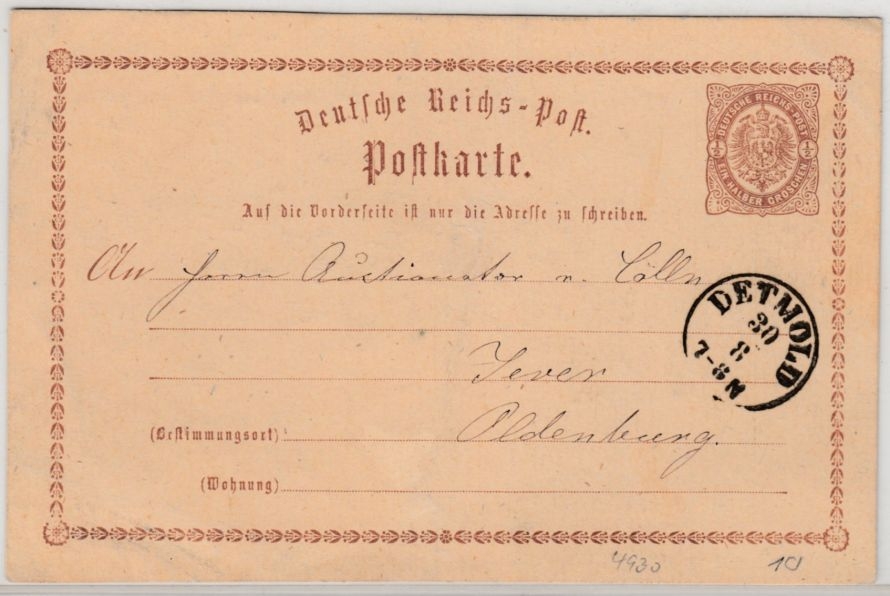 Deutsche Reichs-Post.
DEUTSCHE REICHS-POST
½ ½
EIN HALBER GROSCHEN
Postkarte.
Auf die Vorderseite ist nur die Adresse zu schreiben.
An Herrn Auctionator v. Cölln
DETMOLD
30
8
7-8 N
Jever
(Bestimmungsort) Oldenburg.
(Wohnung)
4930 10